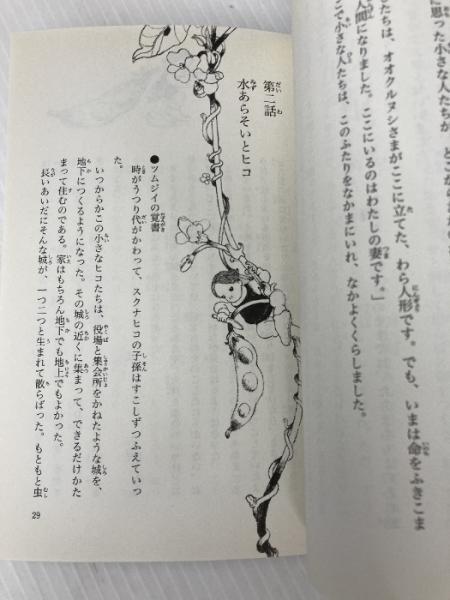 に思った小さな人たちが
たちは、オオクルヌシさまがここに立てた、わら人形です。でも、いまは命をふきこま
人間になりました。ここにいるのはわたしの妻です。」
こで小さな人たちは、このふたりをなかまにいれ、なかよくくらしました。
第二話
水あらそいとヒコ
●ツムジイの覚書
時がうつり代がかわって、スクナヒコの子孫はすこしずつふえていっ
た。
いつからかこの小さなヒコたちは、役場と集会所をかねたような城を、
地下につくるようになった。その城の近くに集まって、できるだけかた
まって住むのである。家はもちろん地下でも地上でもよかった。
長いあいだにそんな城が、一つ二つと生まれて散らばった。もともと虫
29